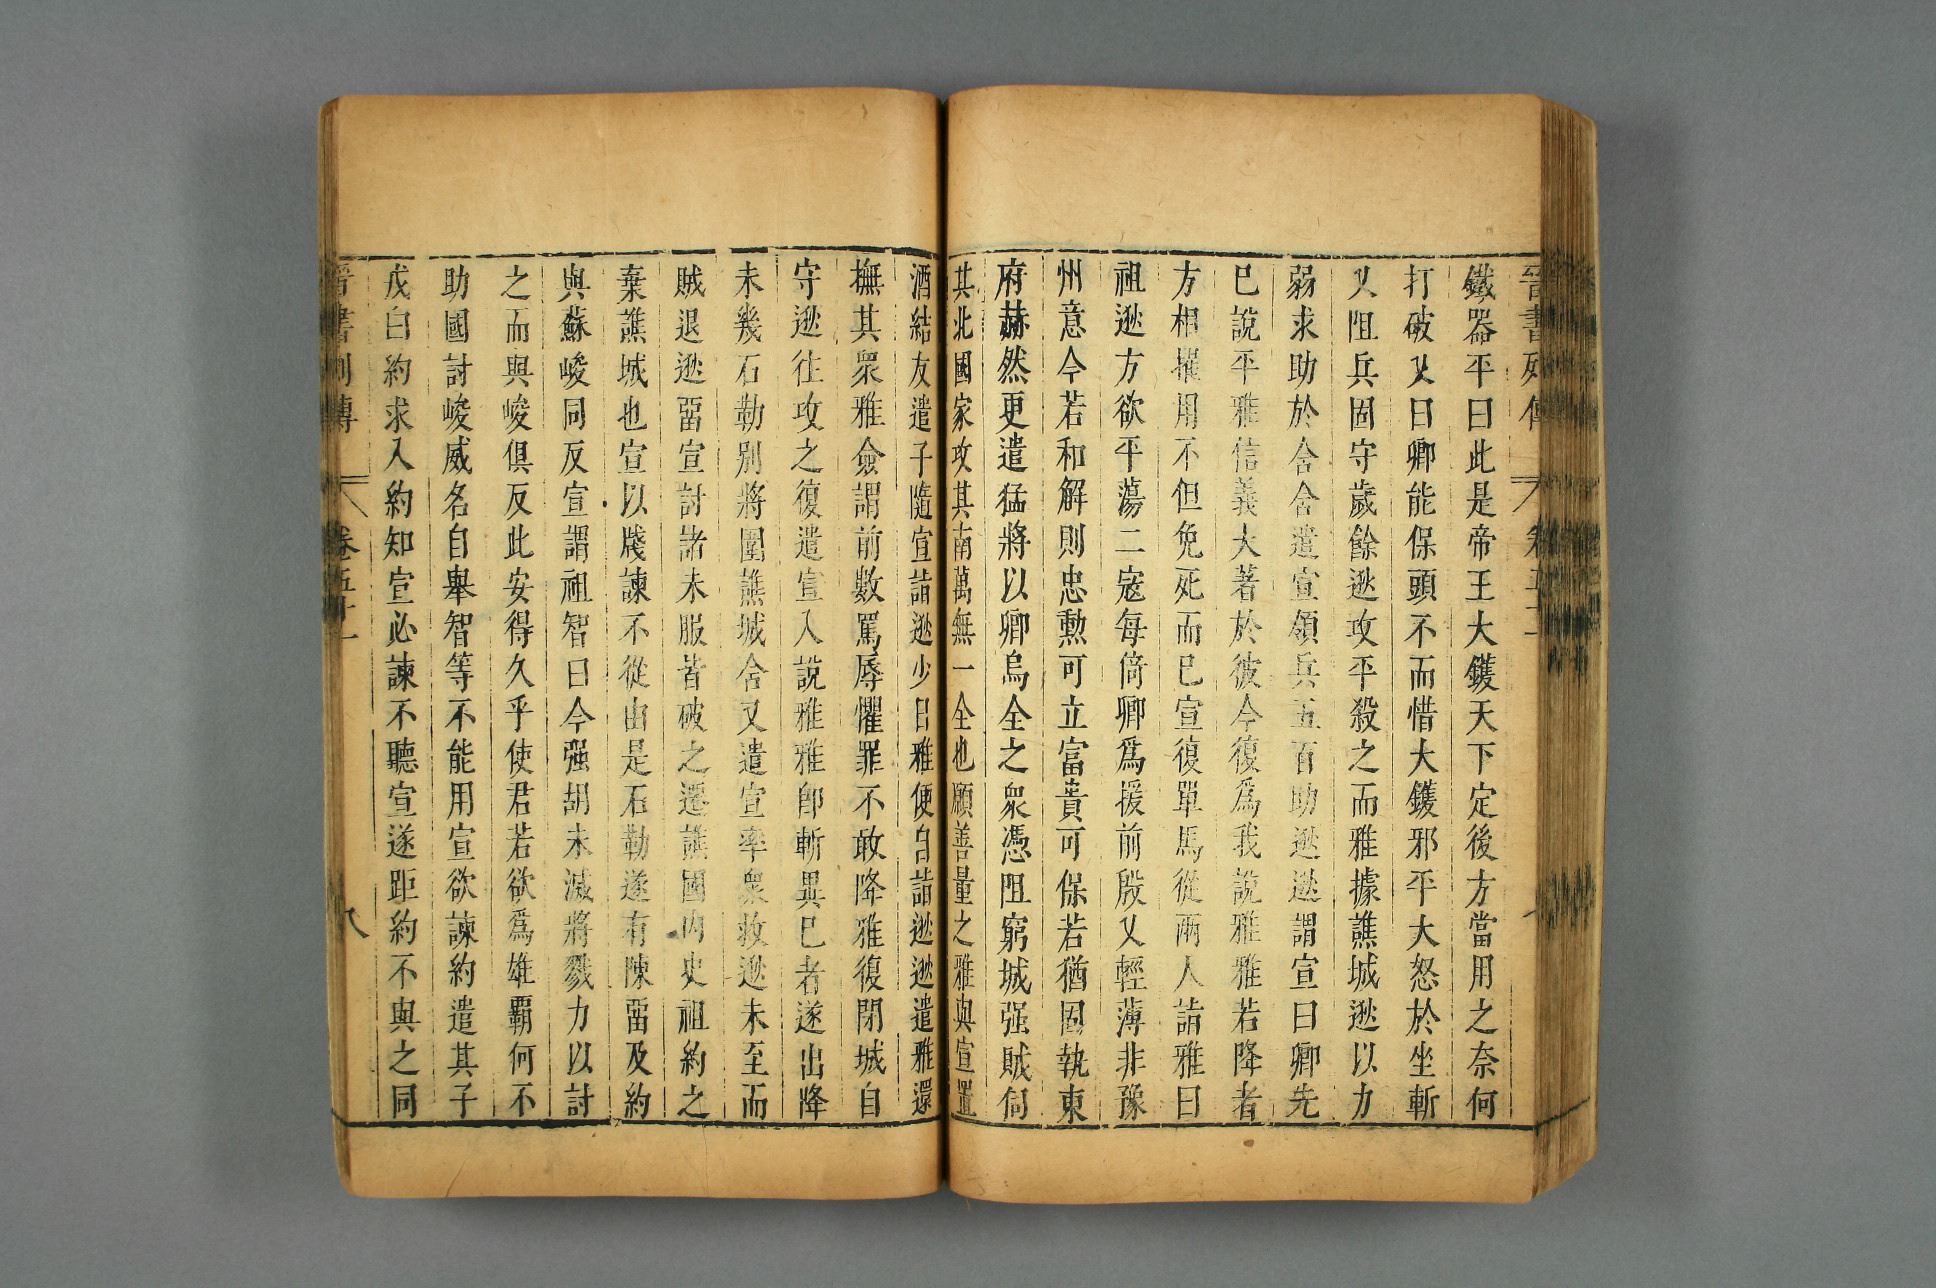 鐵器平曰此是帝王大鑊天下定後方當用之奈何
打破乂曰卿能保頭不而惜大鑊邪平大怒於坐斬
乂阻兵固守歲餘逖攻平殺之而雅據譙城逖以力
弱求助於含含遣宣領兵五百助逖逖謂宣曰卿先
已說平雅信義大著於彼今復爲我說雅雅若降者
方相擢用不但免死而已宣復單馬從兩人詣雅曰
祖逖方欲平蕩二寇每倚卿爲援前殷乂輕薄非豫
州意今若和解則忠勲可立富貴可保若猶固執東
府赫然更遣猛將以卿烏全之衆憑阻窮城强賊伺
其北國家攻其南萬無一全也願善量之雅與宣置
酒結友遣子隨宣詣逖少日雅便自詣逖逖遣雅還
撫其衆雅僉謂前數罵辱懼罪不敢降雅復閉城自
守逖往攻之復遣宣入說雅雅卽斬異巳者遂出降
未幾石勒別將圍譙城含又遣宣率衆救逖未至而
賊退逖畱宣討諸未服皆破之遷譙國內史祖約之
棄譙城也宣以牋諫不從由是石勒遂有陳畱及約
與蘇峻同反宣謂祖智曰今强胡未滅將戮力以討
之而與峻俱反此安得久乎使君若欲爲雄霸何不
助國討峻威名自舉智等不能用宣欲諫約遣其子
戎白約求入約知宣必諫不聽宣遂距約不與之同
晉書列傳 卷五十一 八